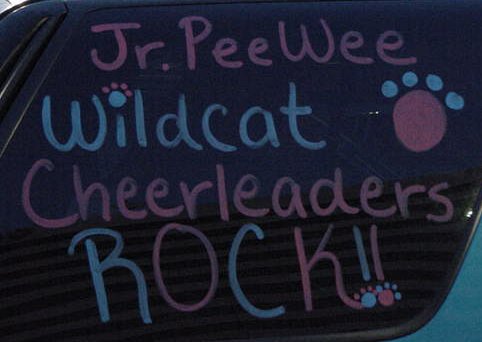 Jr. Pee Wee
Wildcat
Cheerleaders
ROCK!!